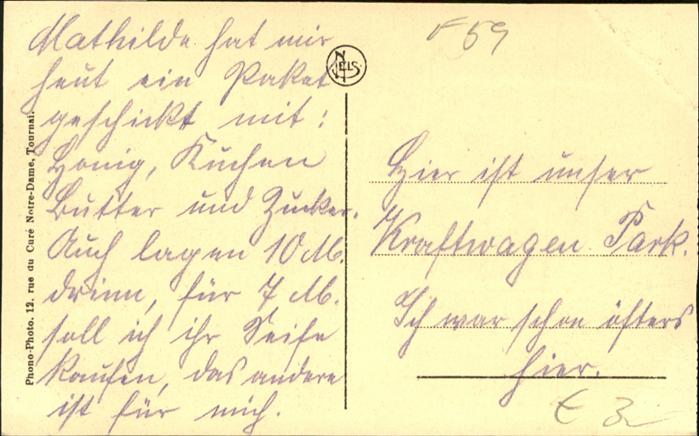 Mathilde hat mir
heut ein Paket
geschickt mit:
Honig, Kuchen
Butter und Zucker.
Auch lagen 10 M.
drinn, für 7 M.
soll ich ihr Seife
kaufen, das andere
ist für mich.
Phono-Photo. 12. rue du Curé Notre-Dame, Tournai.
NELS
F 59
Hier ist unser
Kraftwagen Park.
Ich war schon öfters
hier.
€ 3